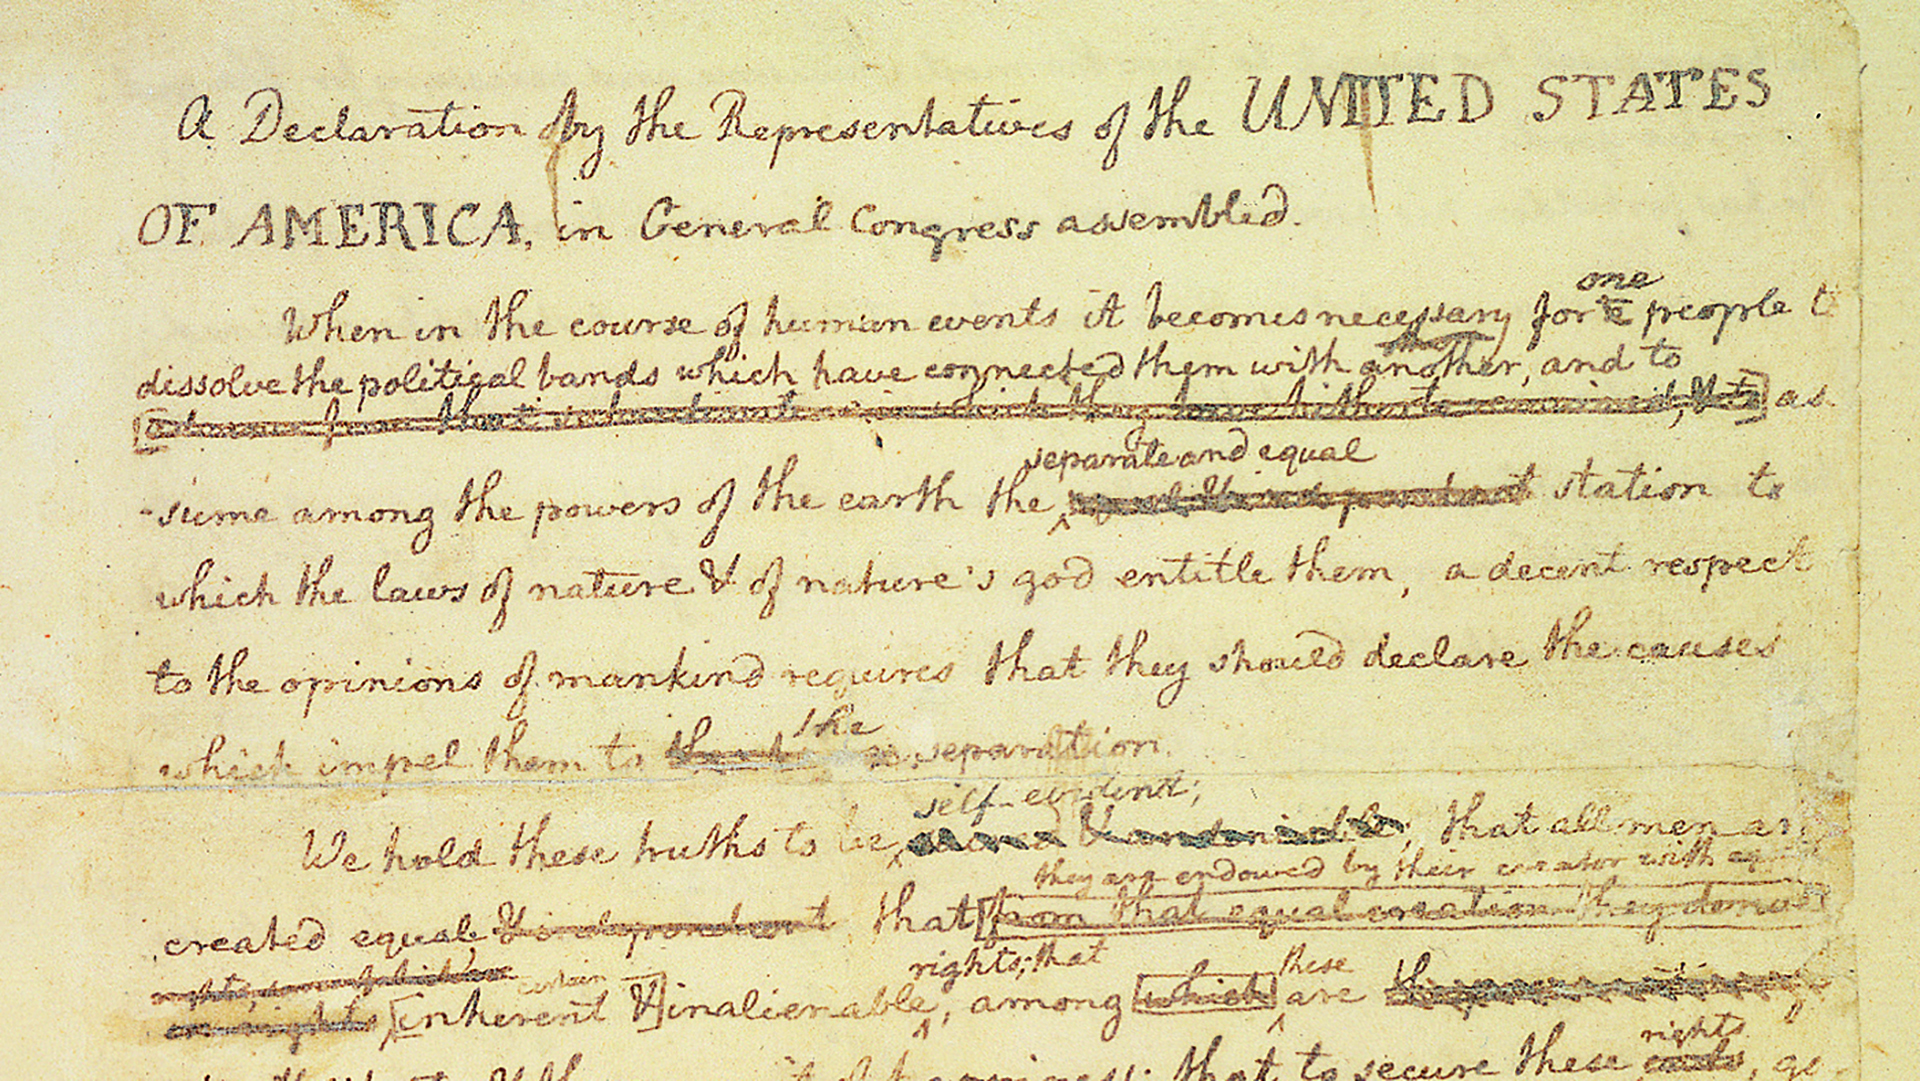 A Declaration by the Representatives of the UNITED STATES
OF AMERICA, in General Congress assembled.
one
When in the course of human events it becomes necessary for a people t
dissolve the political bands which have connected them with another, and to
which they have hitherto remained, & to] as
separate and equal
-sume among the powers of the earth the equal & independant station to
which the laws of nature & of nature's god entitle them, a decent respect
to the opinions of mankind requires that they should declare the causes
the
which impel them to separation.
self-evident;
We hold these truths to be sacred & undeniable; that all men ar
they are endowed by their creator with eq
created equal & independant that [from that equal creation they derive
rights; that these
certain
rights [inherent &] inalienable, among [which] are
rights
that to secure these ends, go